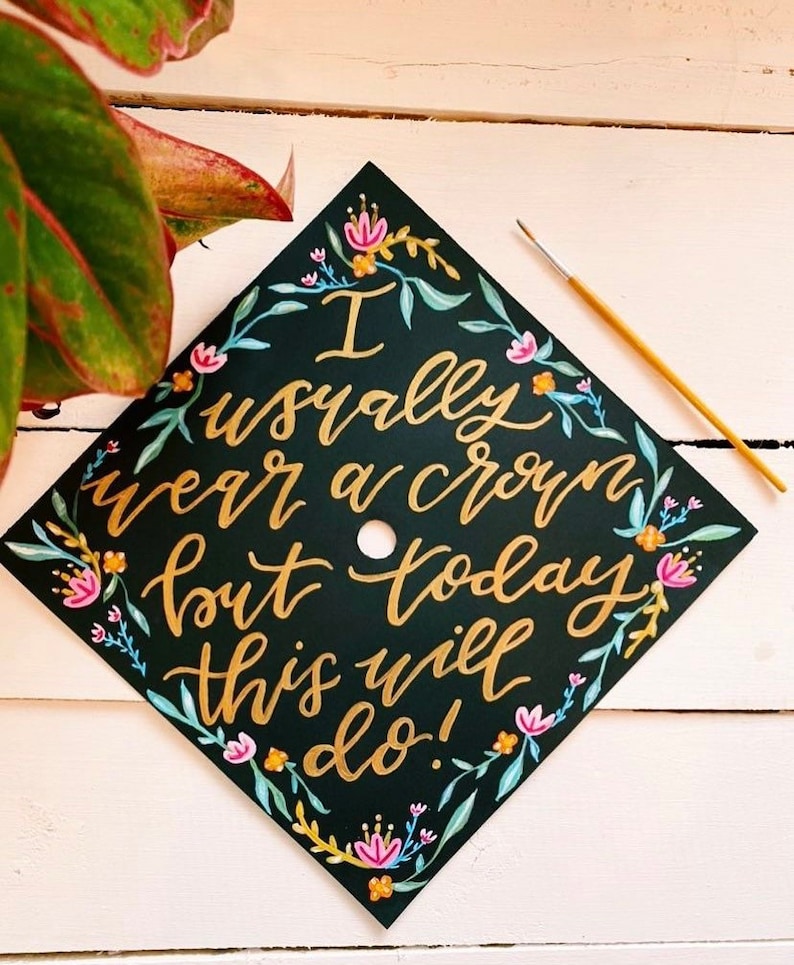 I
usually
wear a crown
but today
this will
do!